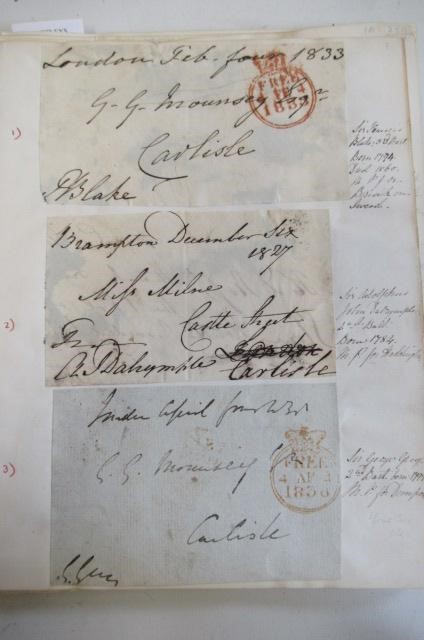 London Feb. four 1833
G. G. Mounsey Esqr
Carlisle
FBlake
FREE
1833
1)
Sir Francis
Blake, 3rd Bart
Born 1774
M. P. for
Berwick on
Tweed.
Brampton December Six
1827
Miss Milne
Castle Street
Carlisle
Fr.
A. J Dalrymple
2)
Sir Adolphus
John Dalrymple
2nd Bart
Born 1784.
M. P. for Haddington
April
G. G. Mounsey
Carlisle
G. Grey
FREE
1836
3)
Sir George Grey
2nd Bart born 1799
M. P. for Devonport